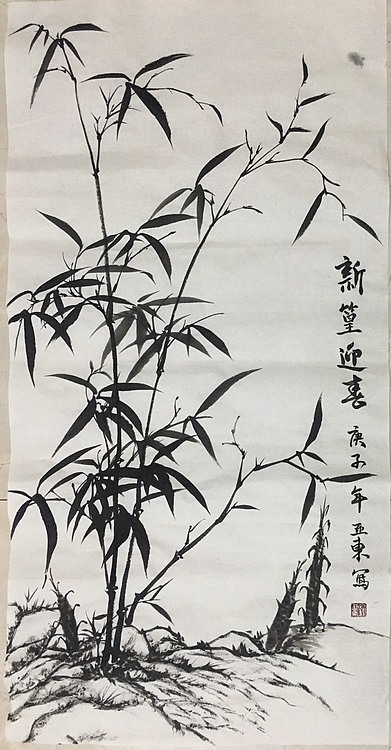 新篁迎春
庚子年亚東寫